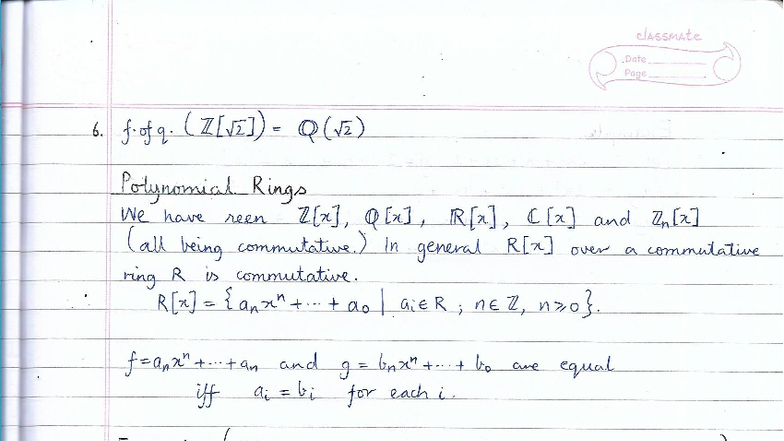 classmate
Date
Page
6. f. of q. (ℤ[√2]) = ℚ(√2)
Polynomial Rings
We have seen ℤ[x], ℚ[x], ℝ[x], ℂ[x] and ℤₙ[x]
(all being commutative.) In general R[x] over a commutative
ring R is commutative.
R[x] = {aₙxⁿ + ··· + a₀ | aᵢ ∈ R ; n ∈ ℤ, n ≥ 0}.
f = aₙxⁿ + ··· + aₙ and g = bₙxⁿ + ··· + b₀ are equal
iff aᵢ = bᵢ for each i.